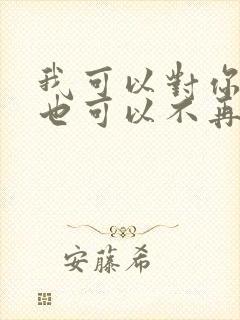 我可以對你
也可以不再
安藤希